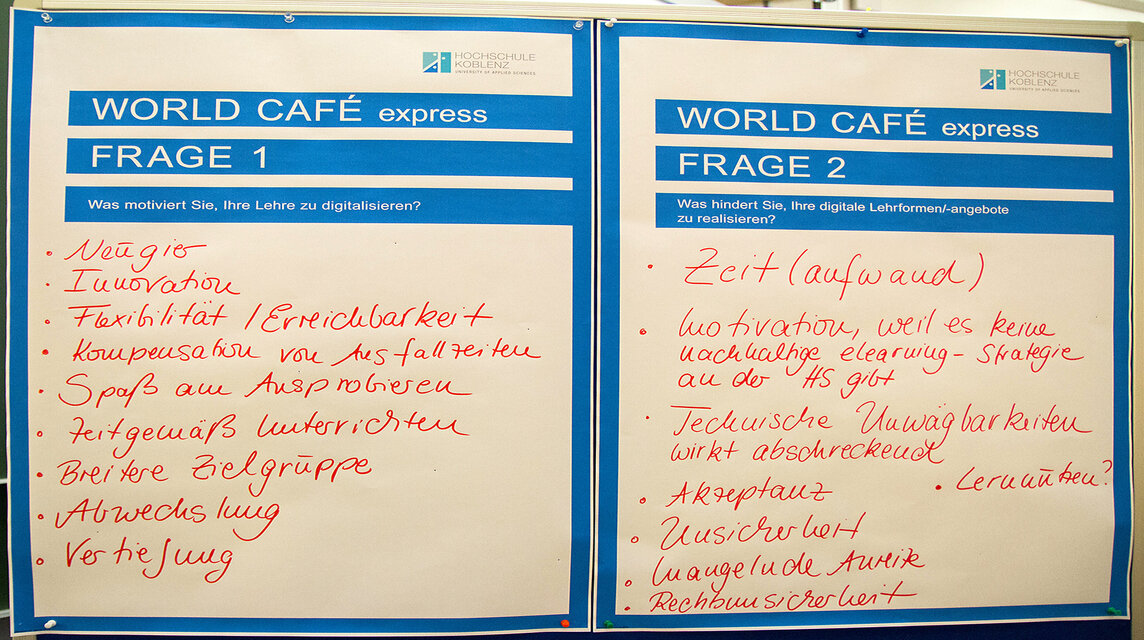 HOCHSCHULE
KOBLENZ
UNIVERSITY OF APPLIED SCIENCES
WORLD CAFÉ express
FRAGE 1
Was motiviert Sie, Ihre Lehre zu digitalisieren?
• Neugier
• Innovation
• Flexibilität / Erreichbarkeit
• Kompensation von Ausfallzeiten
• Spaß am Ausprobieren
• Zeitgemäß unterrichten
• Breitere Zielgruppe
• Abwechslung
• Vertiefung
HOCHSCHULE
KOBLENZ
UNIVERSITY OF APPLIED SCIENCES
WORLD CAFÉ express
FRAGE 2
Was hindert Sie, Ihre digitale Lehrformen/-angebote
zu realisieren?
• Zeit (aufwand)
• Motivation, weil es keine
nachhaltige elearning-Strategie
an der HS gibt
• Technische Unwägbarkeiten
wirkt abschreckend
• Akzeptanz
• Lernnutzen?
• Unsicherheit
• Mangelnde Anreize
• Rechtsunsicherheit